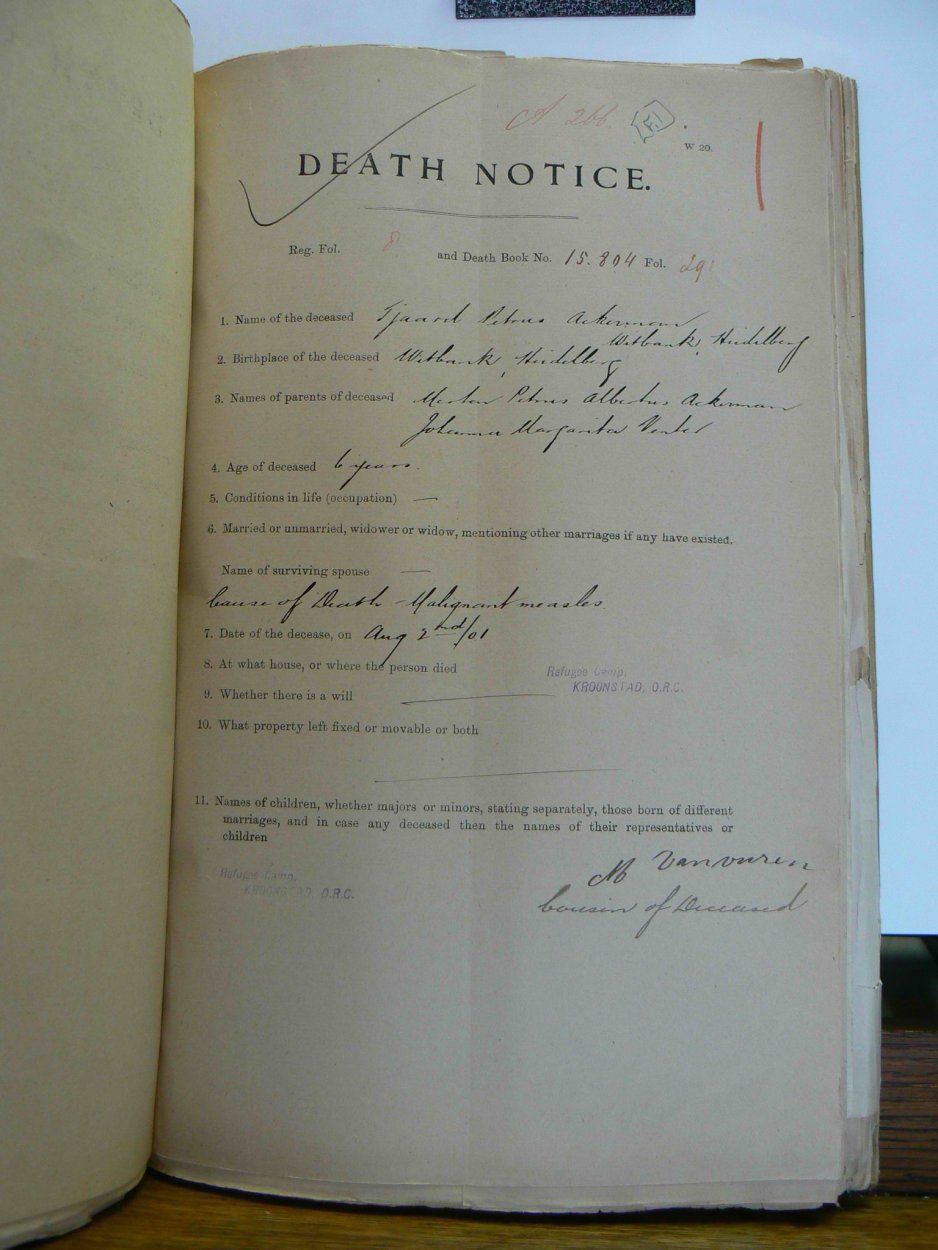 A 266.
W 20.
DEATH NOTICE.
Reg. Fol. 8 and Death Book No. 15.804 Fol. 29
1. Name of the deceased Tjaard Petrus Ackerman
Witbank, Heidelberg
2. Birthplace of the deceased Witbank, Heidelberg
3. Names of parents of deceased Petrus Albertus Ackerman
Johanna Margareta Venter
4. Age of deceased 6 years.
5. Conditions in life (occupation) —
6. Married or unmarried, widower or widow, mentioning other marriages if any have existed.
Name of surviving spouse —
Cause of Death - Malignant measles
7. Date of the decease, on Aug 2nd/01
8. At what house, or where the person died Refugee Camp,
KROONSTAD, O.R.C.
9. Whether there is a will
10. What property left fixed or movable or both
11. Names of children, whether majors or minors, stating separately, those born of different
marriages, and in case any deceased then the names of their representatives or
children
Van vuren
Refugee Camp,
KROONSTAD, O.R.C.
Cousin of Deceased